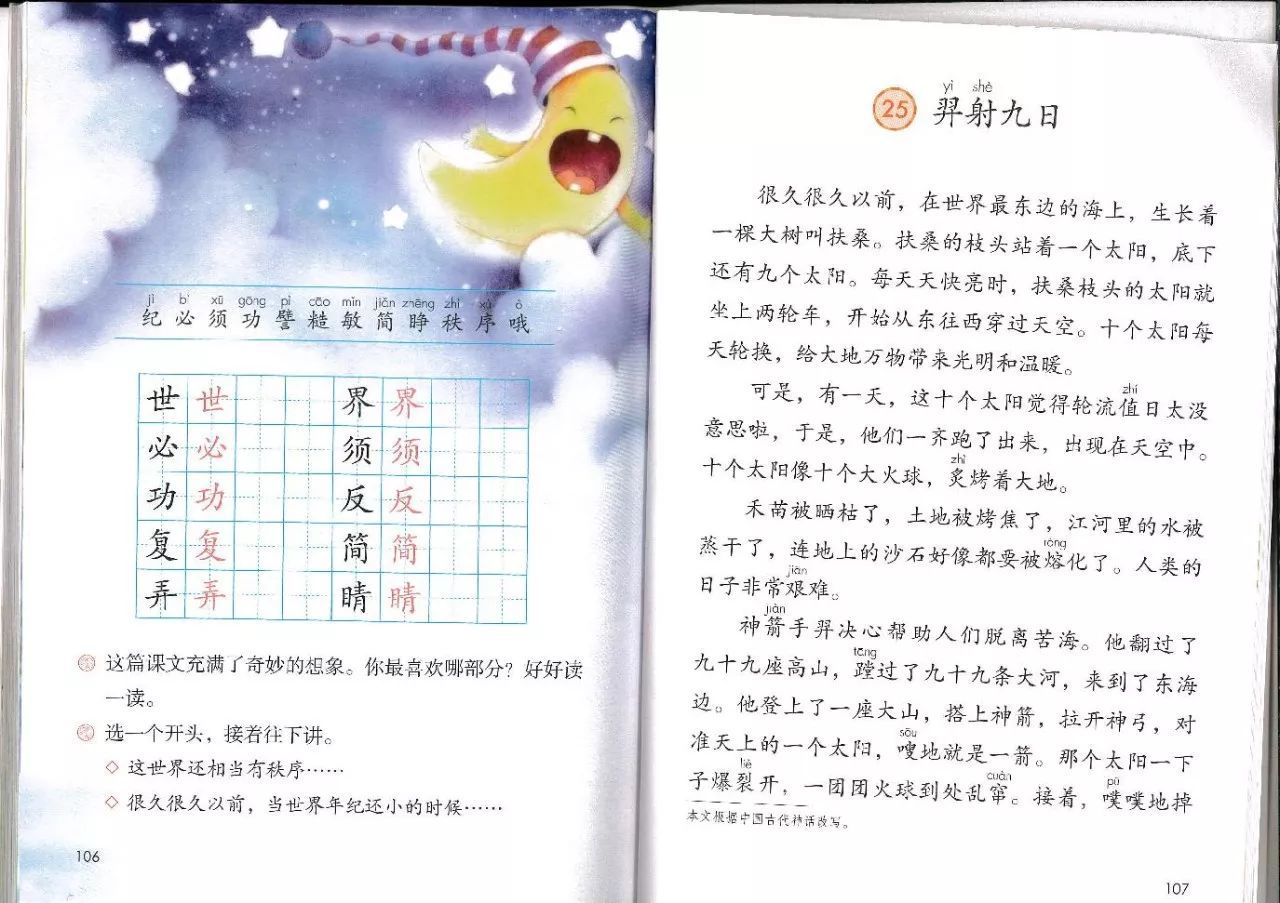 jì bì xū gōng pì cāo mǐn jiǎn zhēng zhì xù ò
纪 必 须 功 譬 糙 敏 简 睁 秩 序 哦
世 世 界 界
必 必 须 须
功 功 反 反
复 复 简 简
弄 弄 睛 睛
这篇课文充满了奇妙的想象。你最喜欢哪部分？好好读
一读。
选一个开头，接着往下讲。
◇ 这世界还相当有秩序……
◇ 很久很久以前，当世界年纪还小的时候……
106
yì shè
25 羿射九日
很久很久以前，在世界最东边的海上，生长着
一棵大树叫扶桑。扶桑的枝头站着一个太阳，底下
还有九个太阳。每天天快亮时，扶桑枝头的太阳就
坐上两轮车，开始从东往西穿过天空。十个太阳每
天轮换，给大地万物带来光明和温暖。
zhí
可是，有一天，这十个太阳觉得轮流值日太没
意思啦，于是，他们一齐跑了出来，出现在天空中。
zhì
十个太阳像十个大火球，炙烤着大地。
禾苗被晒枯了，土地被烤焦了，江河里的水被
róng
蒸干了，连地上的沙石好像都要被熔化了。人类的
jiān
日子非常艰难。
jiàn
神箭手羿决心帮助人们脱离苦海。他翻过了
tāng
九十九座高山，蹚过了九十九条大河，来到了东海
边。他登上了一座大山，搭上神箭，拉开神弓，对
sōu
准天上的一个太阳，嗖地就是一箭。那个太阳一下
liè cuàn pū
子爆裂开，一团团火球到处乱窜。接着，噗噗地掉
本文根据中国古代神话改写。
107